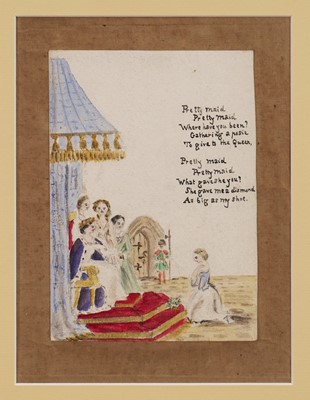 Pretty maid
Pretty Maid
Where have you been?
Gathering a posie
To give to the Queen.
Pretty maid
Pretty maid
What gave she you?
She gave me a diamond
As big as my shoe.